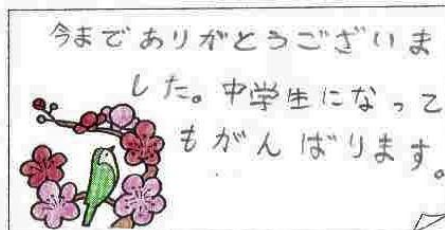 今までありがとうございま
した。中学生になって
もがんばります。